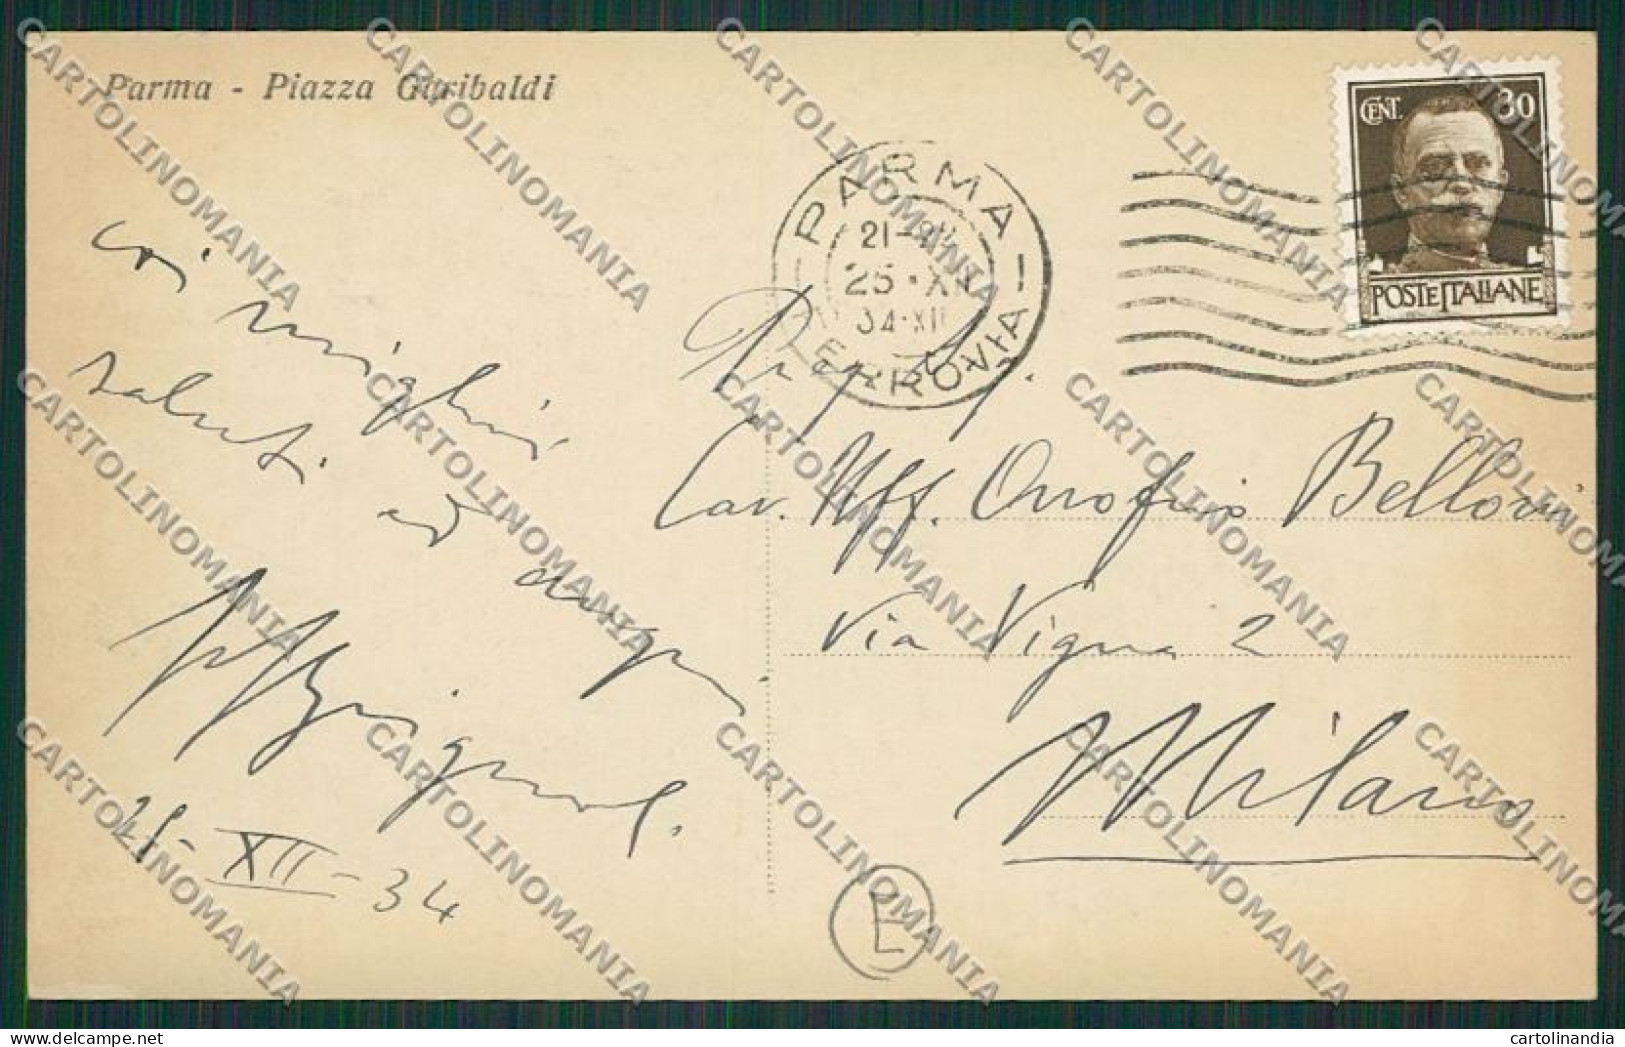 Parma - Piazza Garibaldi
CENT. 30
POSTE ITALIANE
PARMA
21-
25·XII
34·XIII
FERROVIA
coi migliori
saluti. ed
auguri
25-XII-34
Cav. Uff. Onofrio Belloni
Via Vigna 2
Milano
L
CARTOLINOMANIA
cartolinandia